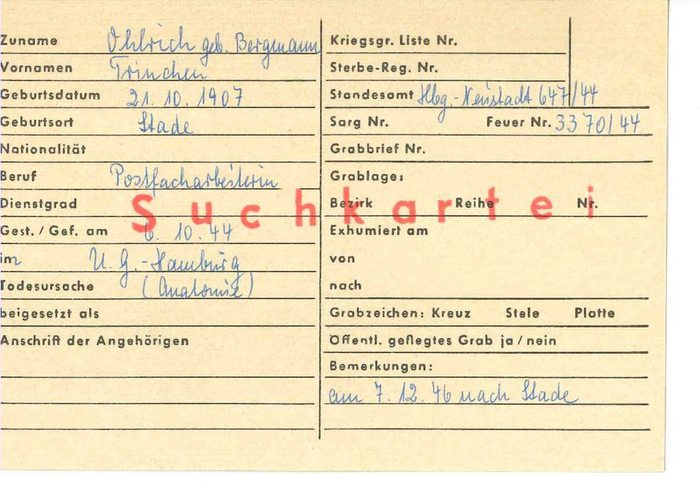 Zuname Ohlrich geb. Bergmann
Vornamen Trinchen
Geburtsdatum 21.10.1907
Geburtsort Stade
Nationalität
Beruf Postfacharbeiterin
Dienstgrad
Gest. / Gef. am 6.10.44
in: U.G.-Hamburg
Todesursache (Anatomie)
beigesetzt als
Anschrift der Angehörigen
Suchkartei
Kriegsgr. Liste Nr.
Sterbe-Reg. Nr.
Standesamt Hbg.-Neustadt 647/44
Sarg Nr. Feuer Nr. 3370/44
Grabbrief Nr.
Grablage:
Bezirk Reihe Nr.
Exhumiert am
von
nach
Grabzeichen: Kreuz Stele Platte
Öffentl. geflegtes Grab ja / nein
Bemerkungen:
am 7.12.46 nach Stade